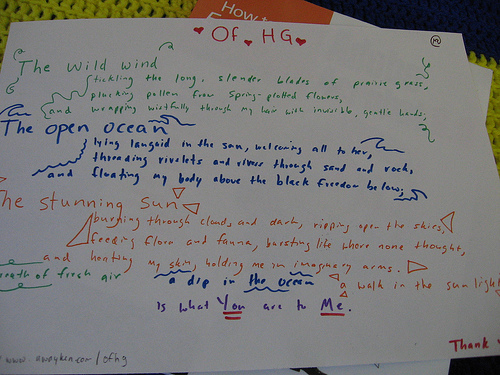 How
Of HG
The wild wind
tickling the long, slender blades of prairie grass,
plucking pollen from Spring-platted flowers,
and wrapping wistfully through my hair with invisible, gentle hands;
The open ocean
lying languid in the sun, welcoming all to her,
threading rivelets and rivers through sand and rock,
and floating my body above the black freedom below;
The stunning sun
burning through clouds and dark, ripping open the skies,
feeding flora and fauna, bursting life where none thought,
and heating my skin, holding me in imaginary arms.
breath of fresh air
a dip in the ocean
a walk in the sun light
is what You are to Me.
Thank
www. /ofhg